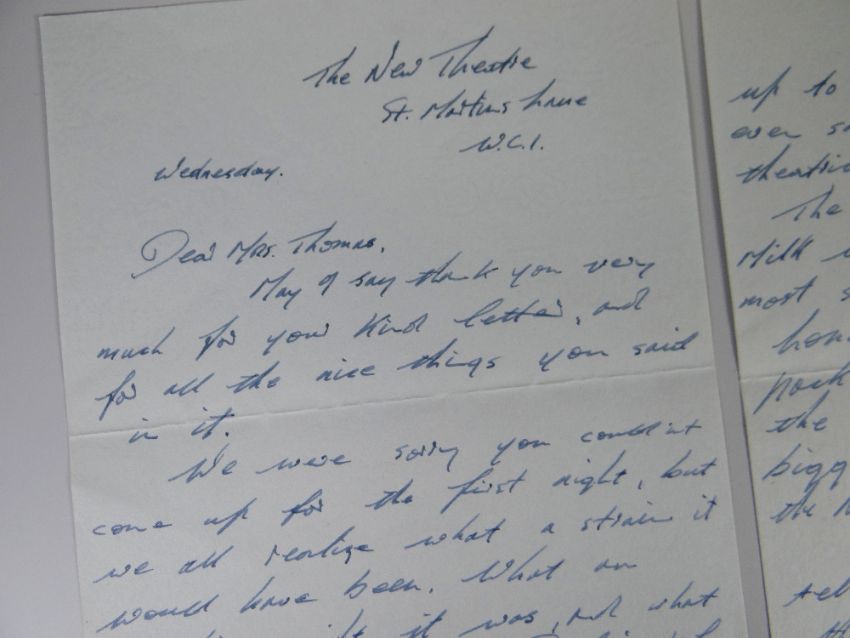 The New Theatre
St. Martins Lane
W.C.1.
Wednesday.
Dear Mrs. Thomas,
May I say thank you very
much for your kind letter, and
for all the nice things you said
in it.
We were sorry you couldn't
come up for the first night, but
we all realize what a strain it
would have been. What an
it was, and what
up to
even
theatric
The
Milk
most s
hon
pock
the
bigg
the
tel